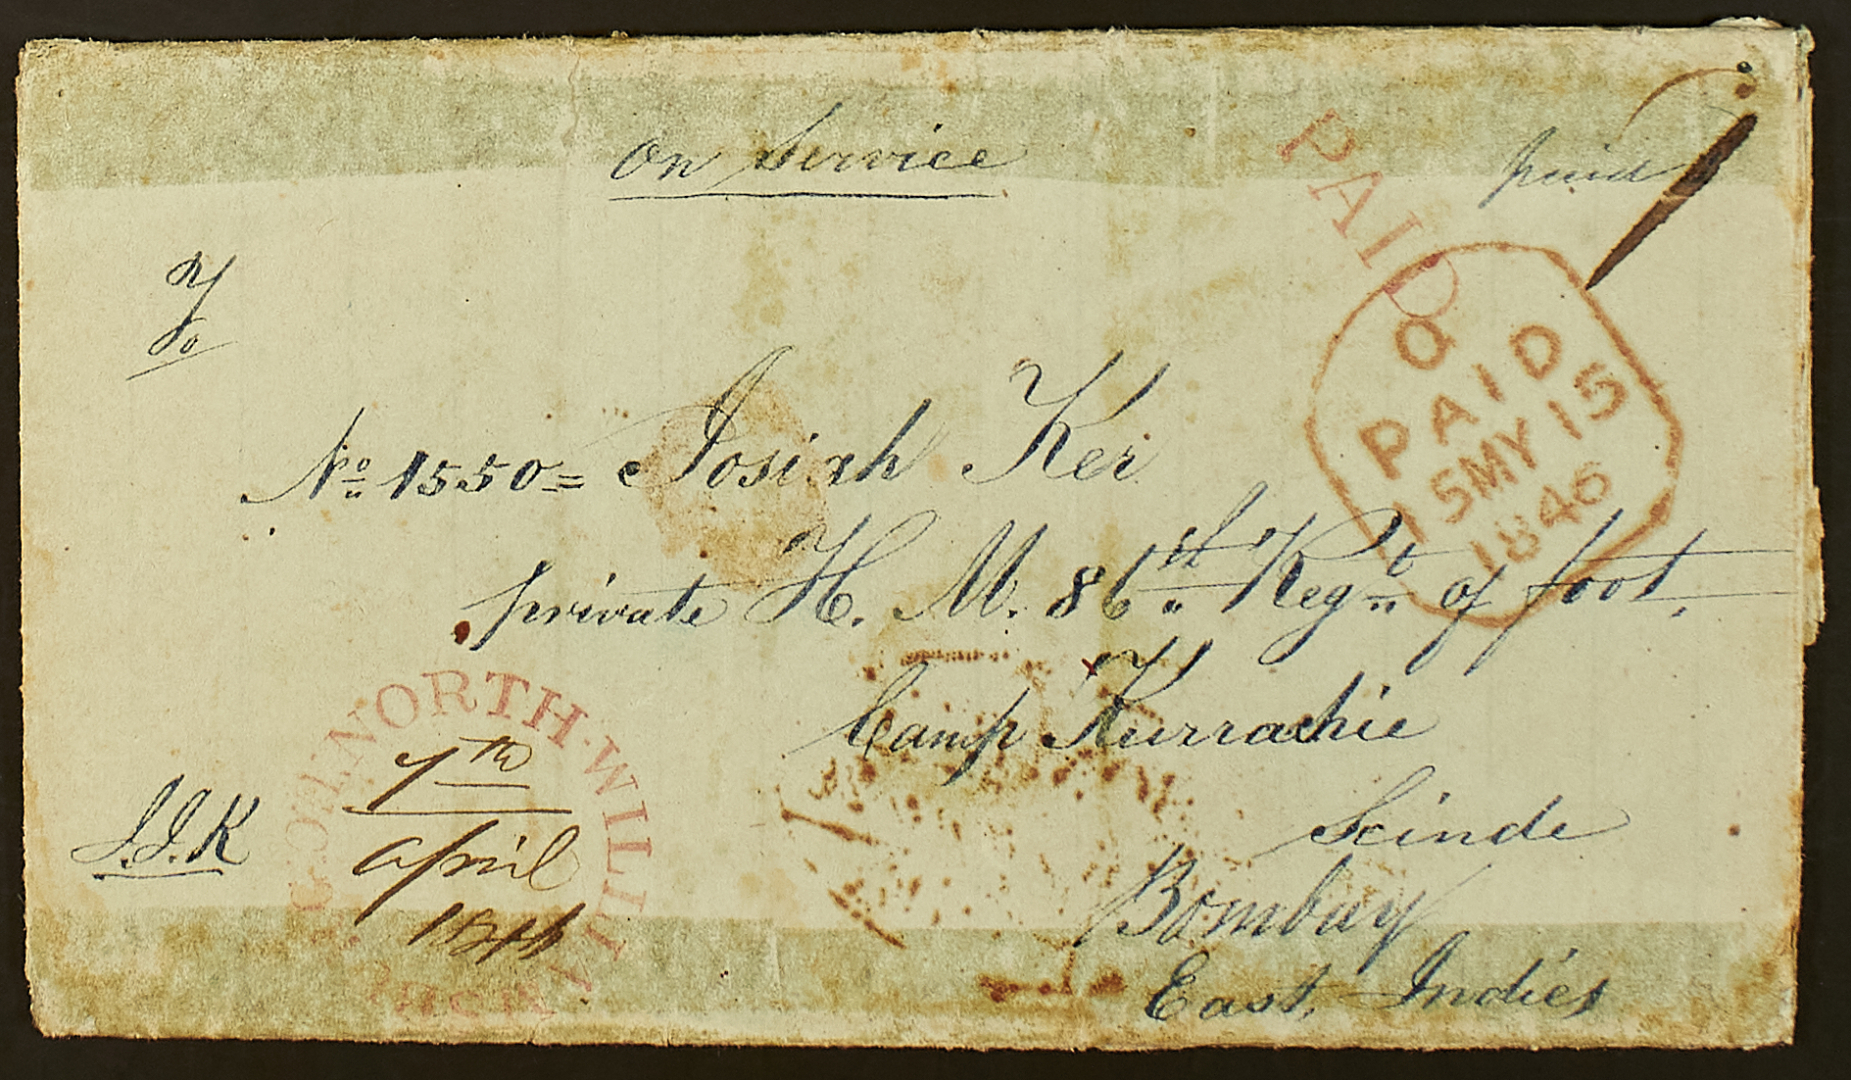 On Service
paid
PAID
To
a
PAID
15MY15
1846
No 1550= Josiah Ker
private H. M. 86th Regt of foot.
Camp Kurrachie
Scinde
Bombay
East, Indies
NORTH-WILLIA
7th
april
1846
J.J.K